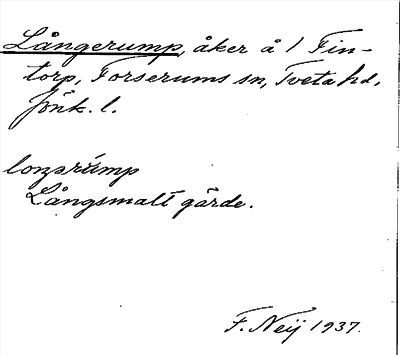 Långerump, åker å 1 Fin-
torp, Forserums sn, Tveta hd,
Jönk. l.
longsrump
Långsmalt gärde.
F. Neij 1937.